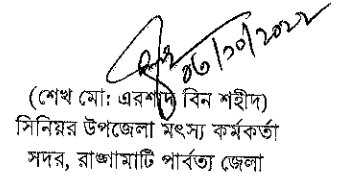 ০৬/১০/২০২২
(শেখ মো: এরশাদ বিন শহীদ)
সিনিয়র উপজেলা মৎস্য কর্মকর্তা
সদর, রাঙ্গামাটি পার্বত্য জেলা